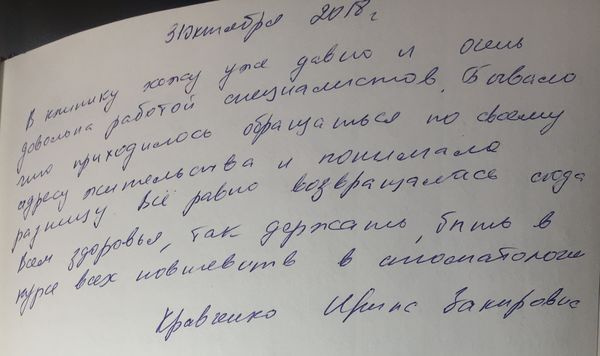 31 октября 2018 г
В клинику хожу уже давно и очень
довольна работой специалистов. Бывало
что приходилось обращаться по своему
адресу жительства и понимала
разницу. Всё равно возвращалась сюда
Всем здоровья, так держать, быть в
курсе всех новшевств в стоматологии
Кравченко Ирина Закировна